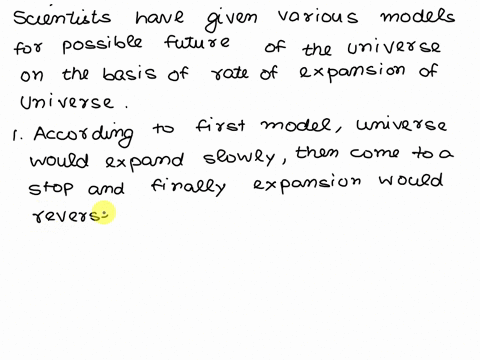 Scientists have given various models
for possible future of the universe
on the basis of rate of expansion of
Universe.
1. According to first model, universe
would expand slowly, then come to a
stop and finally expansion would
revers